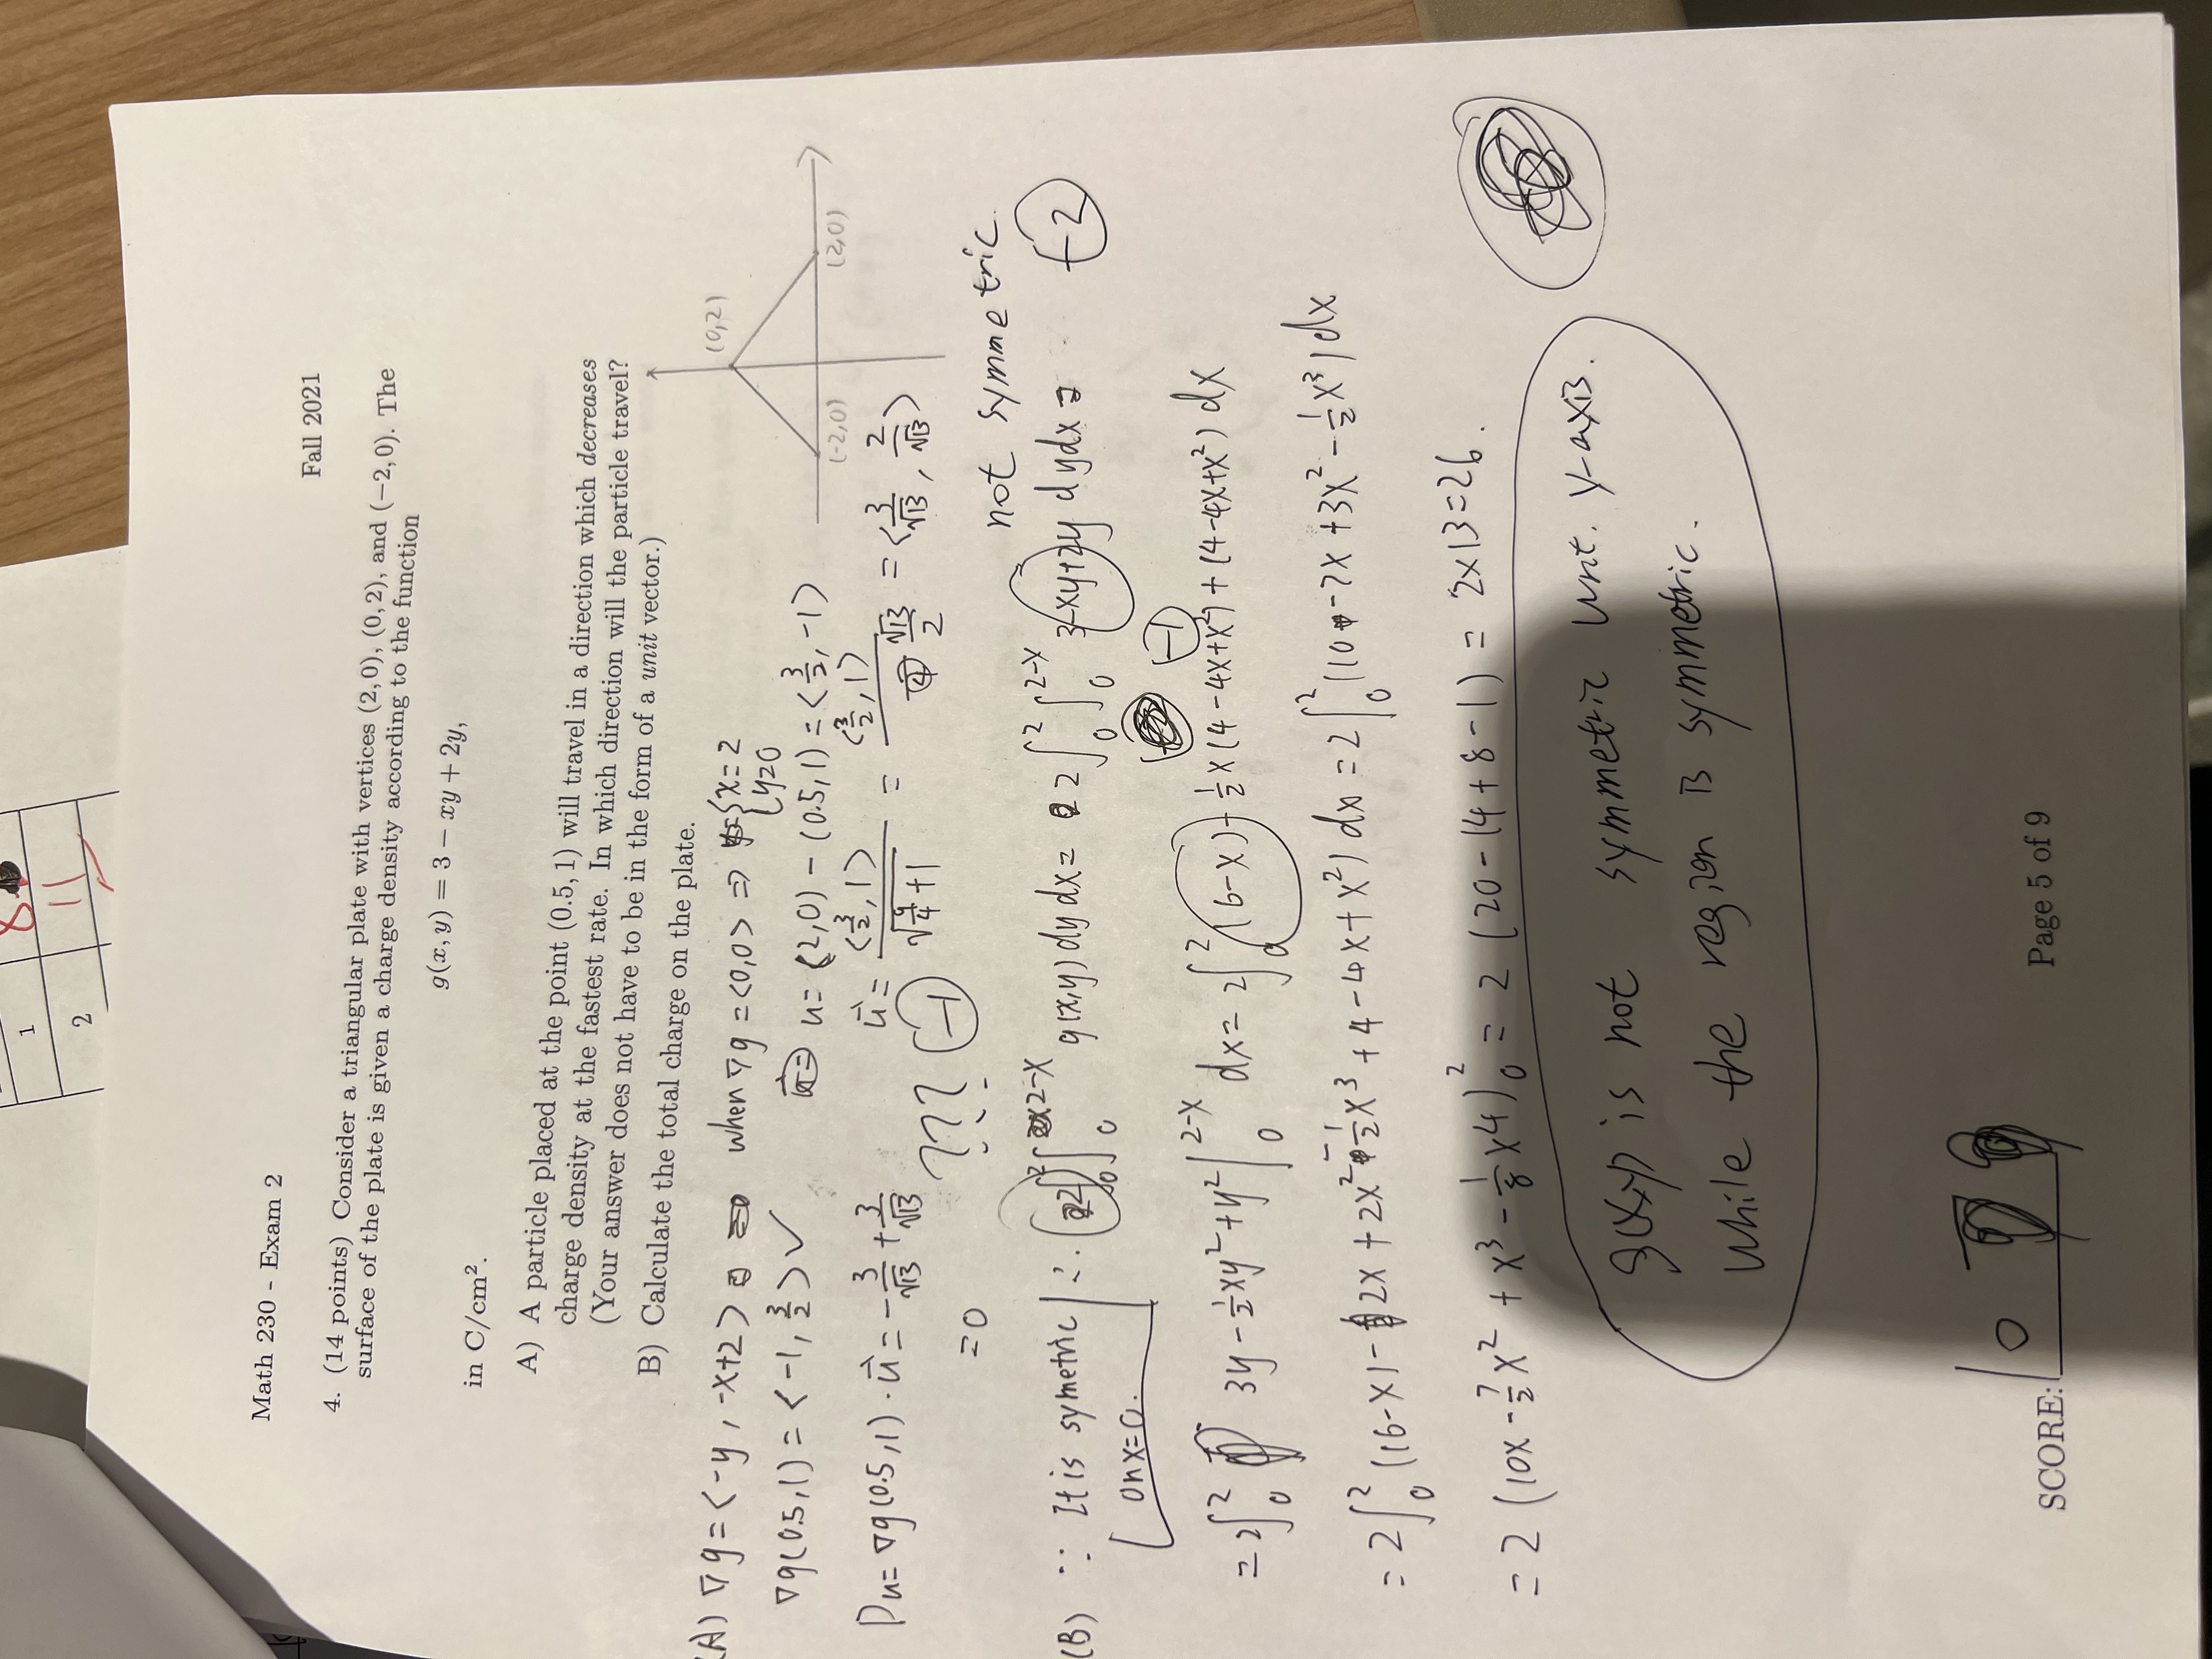 8
1
11
2
Math 230 - Exam 2
Fall 2021
4. (14 points) Consider a triangular plate with vertices (2, 0), (0, 2), and (−2, 0). The
surface of the plate is given a charge density according to the function
g(x, y) = 3 − xy + 2y,
in C/cm².
A) A particle placed at the point (0.5, 1) will travel in a direction which decreases
charge density at the fastest rate. In which direction will the particle travel?
(Your answer does not have to be in the form of a unit vector.)
B) Calculate the total charge on the plate.
(0,2)
(-2,0)
(2,0)
(A) ∇g = <-y, -x+2> when ∇g = <0,0> ⇒ {x=2
{y=0
∇g(0.5,1) = <-1, 3/2> ✓ u = <2,0) - (0.5,1) = <3/2, -1>
Du = ∇g(0.5,1)·u⃗ = -3/√13 + 3/√13 u⃗ = <3/2, 1>/√(9/4+1) = <3/2, 1>/(√13/2) = <3/√13, 2/√13>
= 0 ??? -1
not symmetric
(B) ∵ It is symetric ∴ g(x,y) dy dx = 2∫₀²∫₀²⁻ˣ 3-xy+2y dy dx = -2
on x=0.
-1
= 2∫₀² 3y - ½xy² + y² |₀²⁻ˣ dx = 2∫₀² (6-x) - ½x(4-4x+x²) + (4-4x+x²) dx
= 2∫₀² (16-x) - 2x + 2x² - ½x³ + 4 - 4x + x²) dx = 2∫₀² (10 - 7x + 3x² - ½x³) dx
= 2 (10x - 7/2x² + x³ - 1/8x⁴)₀² = 2 (20 - 14 + 8 - 1) = 2×13 = 26.
g(x,y) is not symmetric wrt. y-axis.
while the region is symmetric.
SCORE: 10
Page 5 of 9